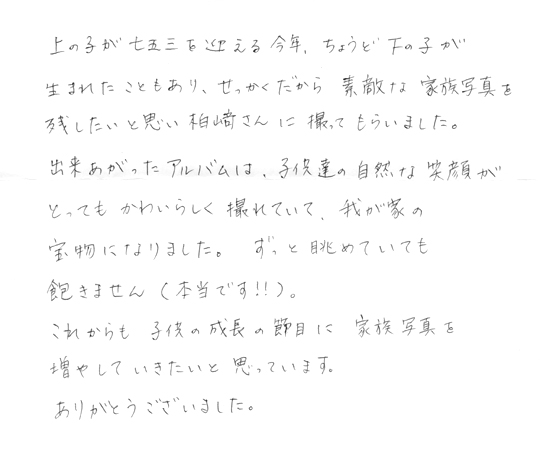 上の子が七五三を迎える今年、ちょうど下の子が
生まれたこともあり、せっかくだから 素敵な 家族写真を
残したいと思い 柏﨑さんに撮ってもらいました。
出来あがったアルバムは、子供達の自然な笑顔が
とってもかわいらしく撮れていて、我が家の
宝物になりました。 ずっと眺めていても
飽きません(本当です!!)。
これからも 子供の成長の節目に 家族写真を
増やしていきたいと思っています。
ありがとうございました。